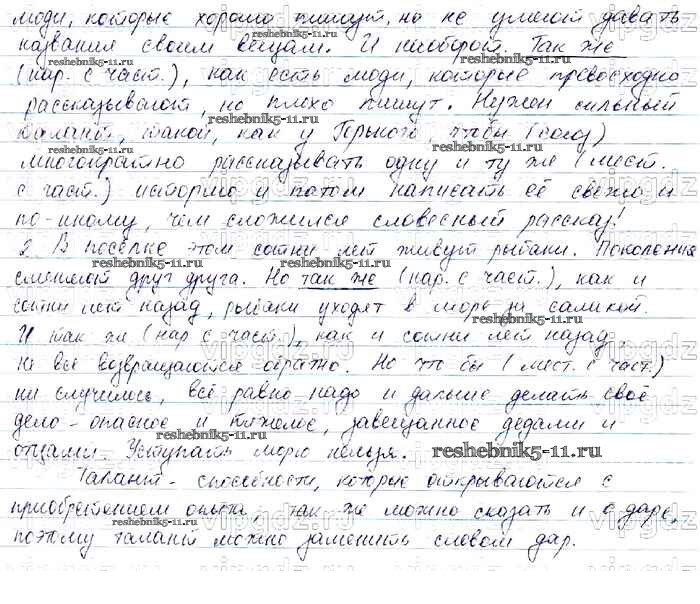 люди, которые хорошо пишут, но не умеют давать
названия своим вещам. И наоборот. Так же
(нар. с част.), как есть люди, которые превосходно
рассказывают, но плохо пишут. Нужен сильный
талант, такой, как у Горького, чтобы (союз)
многократно рассказывать одну и ту же (мест.
с част.) историю и потом написать её свежо и
по-иному, чем сложился словесный рассказ!
2. В посёлке этом сотни лет живут рыбаки. Поколения
сменяют друг друга. Но так же (нар. с част.), как и
сотни лет назад, рыбаки уходят в море за салакой.
И так же (нар с част.), как и сотни лет назад,
не все возвращаются обратно. Но что бы (мест. с част.)
ни случилось, всё равно надо и дальше делать своё
дело - опасное и тяжёлое, завещанное дедами и
отцами. Уступать морю нельзя.
Талант - способности, которые открываются с
приобретением опыта, так же можно сказать и о даре,
поэтому талант можно заменить словом дар.
reshebnik5-11.ru
vipgdz.ru